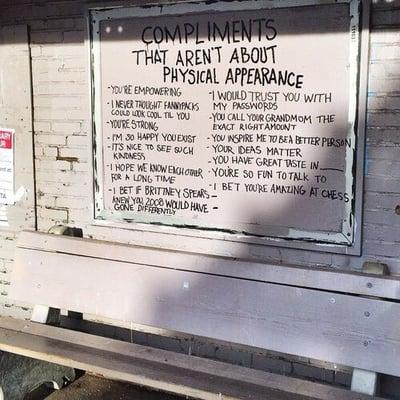 COMPLIMENTS
THAT AREN'T ABOUT
PHYSICAL APPEARANCE
- YOU'RE EMPOWERING
- I NEVER THOUGHT FANNYPACKS
COULD LOOK COOL TIL YOU
- YOU'RE STRONG
- I'M SO HAPPY YOU EXIST
- IT'S NICE TO SEE SUCH
KINDNESS
- I HOPE WE KNOW EACH OTHER
FOR A LONG TIME
- I BET IF BRITTNEY SPEARS
KNEW YOU, 2008 WOULD HAVE
GONE DIFFERENTLY
- I WOULD TRUST YOU WITH
MY PASSWORDS
- YOU CALL YOUR GRANDMOM THE
EXACT RIGHT AMOUNT
- YOU INSPIRE ME TO BE A BETTER PERSON
- YOUR IDEAS MATTER
- YOU HAVE GREAT TASTE IN ____
- YOU'RE SO FUN TO TALK TO
- I BET YOU'RE AMAZING AT CHESS
-
-